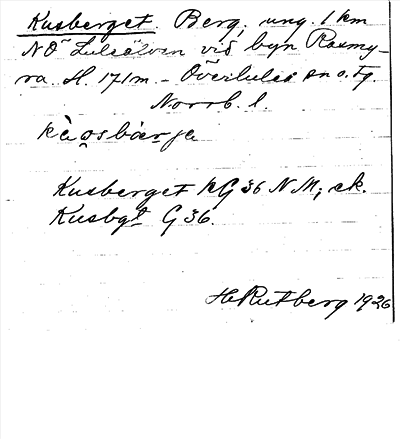 Kusberget. Berg, ung. 1 km
NÖ Luleälven vid byn Rasmy-
ra. H. 171 m. - Överluleå sn o. Fg.
Norrb. l.
Kusberget KG 36 NM; ek.
Kusbgt G 36.
H Rutberg 1926